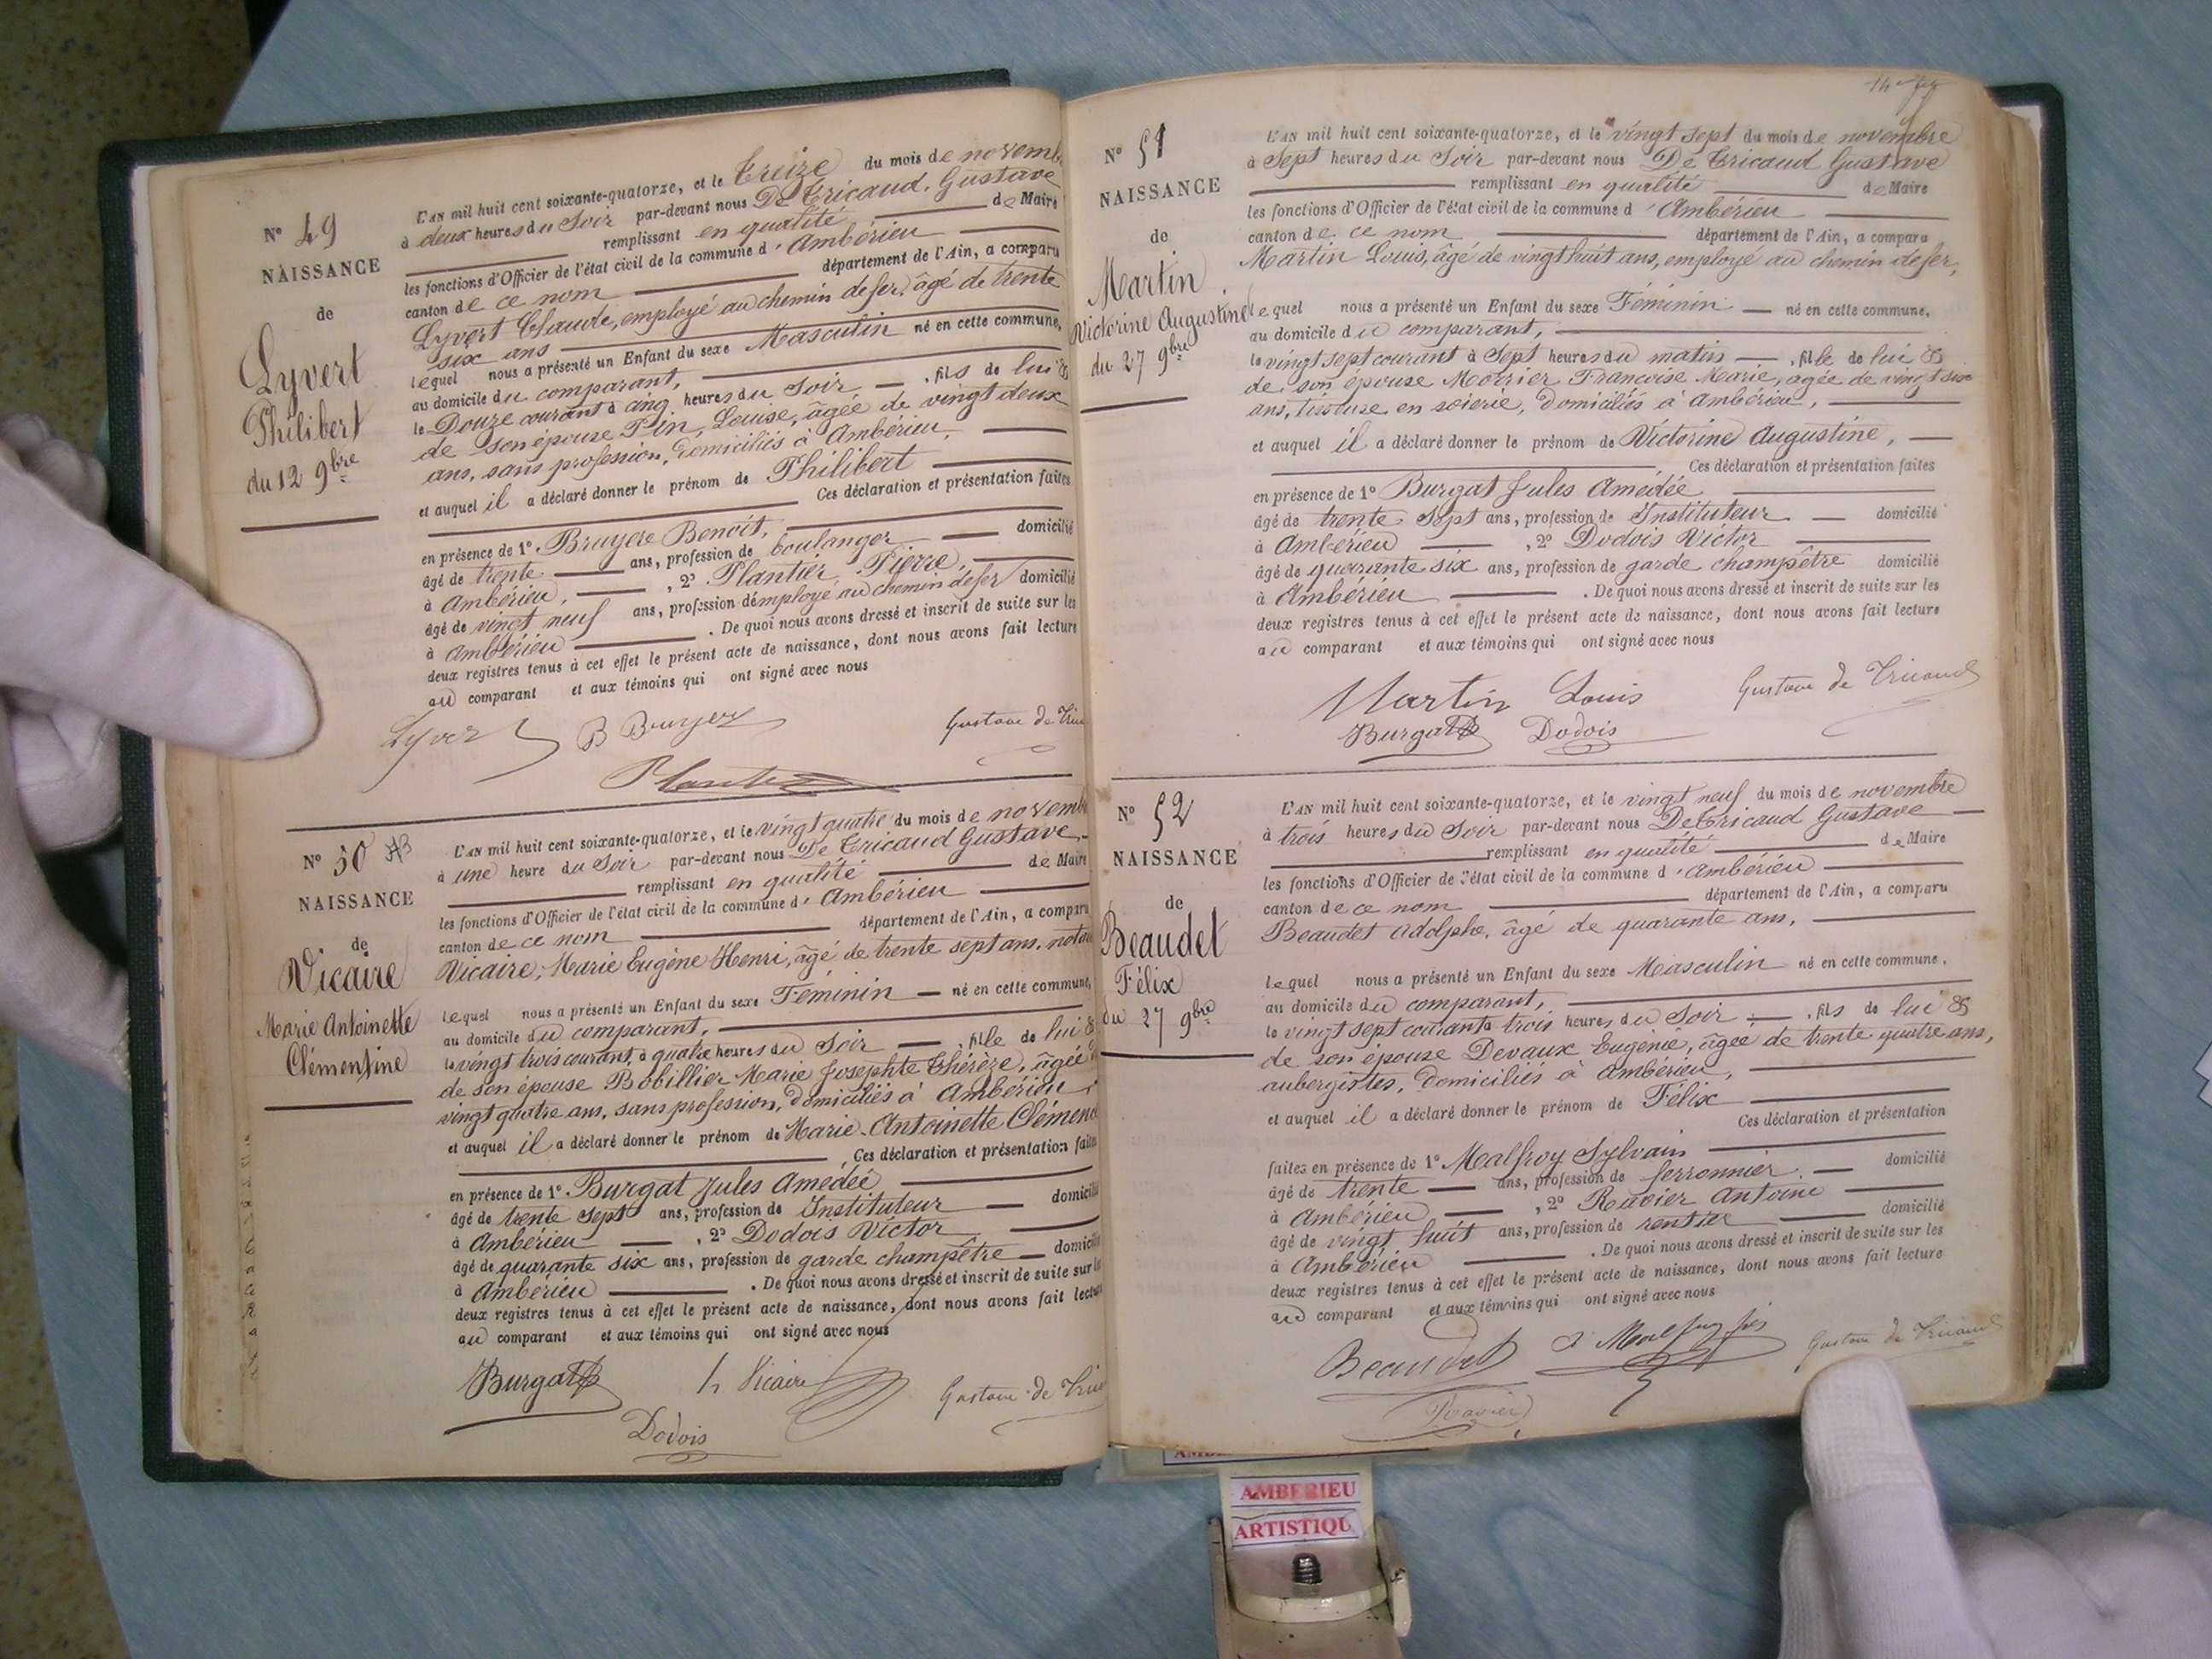 N° 49
NAISSANCE
de
Lyvert
Philibert
du 12 9bre
L'AN mil huit cent soixante-quatorze, et le treize du mois de novemb
à deux heures du Soir par-devant nous De Tricaud, Gustave
remplissant en qualité de Maire
les fonctions d'Officier de l'état civil de la commune d'Ambérieu
canton de ce nom département de l'Ain, a comparu
Lyvert Claude, employé au chemin de fer, âgé de trente
six ans
lequel nous a présenté un Enfant du sexe Masculin né en cette commune,
au domicile du comparant,
le Douze courant à cinq heures du Soir, fils de lui &
de son épouse Pin, Louise, âgée de vingt deux
ans, sans profession, domiciliés à Ambérieu,
et auquel il a déclaré donner le prénom de Philibert
Ces déclaration et présentation faites
en présence de 1° Bruyere Benoit,
âgé de trente ans, profession de boulanger domicilié
à Ambérieu, 2° Plantier, Pierre,
âgé de vingt neuf ans, profession d'employé au chemin de fer domicilié
à Ambérieu. De quoi nous avons dressé et inscrit de suite sur les
deux registres tenus à cet effet le présent acte de naissance, dont nous avons fait lecture
au comparant et aux témoins qui ont signé avec nous
Lyver B Bruyere Gustave de Tric
N° 50
NAISSANCE
de
Vicaire
Marie Antoinette
Clémentine
L'AN mil huit cent soixante-quatorze, et le vingt quatre du mois de novemb
à une heure du Soir par-devant nous De Tricaud Gustave,
remplissant en qualité de Maire
les fonctions d'Officier de l'état civil de la commune d'Ambérieu
canton de ce nom département de l'Ain, a comparu
Vicaire, Marie Eugène Henri, âgé de trente sept ans, nota
lequel nous a présenté un Enfant du sexe Féminin né en cette commune,
au domicile du comparant,
le vingt trois courant à quatre heures du Soir, fille de lui &
de son épouse Bobillier Marie Josephte Thérèze, âgée
vingt quatre ans, sans profession, domiciliés à Ambérieu,
et auquel il a déclaré donner le prénom de Marie-Antoinette Clémen
Ces déclaration et présentation faites
en présence de 1° Burgat Jules Amédée
âgé de trente sept ans, profession de Instituteur domicilié
à Ambérieu, 2° Dodois Victor
âgé de quarante six ans, profession de garde champêtre domicilié
à Ambérieu. De quoi nous avons dressé et inscrit de suite sur les
deux registres tenus à cet effet le présent acte de naissance, dont nous avons fait lecture
au comparant et aux témoins qui ont signé avec nous
Burgat h Vicaire Gustave de Tric
Dodois
N° 51
NAISSANCE
de
Martin
Victorine Augustine
du 27 9bre
L'AN mil huit cent soixante-quatorze, et le vingt sept du mois de novembre
à Sept heures du Soir par-devant nous De Tricaud Gustave
remplissant en qualité de Maire
les fonctions d'Officier de l'état civil de la commune d'Ambérieu
canton de ce nom département de l'Ain, a comparu
Martin Louis, âgé de vingt huit ans, employé au chemin de fer,
lequel nous a présenté un Enfant du sexe Féminin né en cette commune,
au domicile du comparant,
le vingt sept courant à Sept heures du matin, fille de lui &
de son épouse Françoise Marie, âgée de vingt six
ans, tisseuse en soierie, domiciliés à Ambérieu,
et auquel il a déclaré donner le prénom de Victorine Augustine,
Ces déclaration et présentation faites
en présence de 1° Burgat Jules Amédée
âgé de trente sept ans, profession de Instituteur domicilié
à Ambérieu, 2° Dodois Victor
âgé de quarante six ans, profession de garde champêtre domicilié
à Ambérieu. De quoi nous avons dressé et inscrit de suite sur les
deux registres tenus à cet effet le présent acte de naissance, dont nous avons fait lecture
au comparant et aux témoins qui ont signé avec nous
Martin Louis Gustave de Tricaud
Burgat Dodois
N° 52
NAISSANCE
de
Beaudet
Félix
du 27 9bre
L'AN mil huit cent soixante-quatorze, et le vingt neuf du mois de novembre
à trois heures du Soir par-devant nous De Tricaud Gustave
remplissant en qualité de Maire
les fonctions d'Officier de l'état civil de la commune d'Ambérieu
canton de ce nom département de l'Ain, a comparu
Beaudet Adolphe, âgé de quarante ans,
lequel nous a présenté un Enfant du sexe Masculin né en cette commune,
au domicile du comparant,
le vingt sept courant à trois heures du Soir, fils de lui &
de son épouse Devaux Eugénie, âgée de trente quatre ans,
aubergistes, domiciliés à Ambérieu,
et auquel il a déclaré donner le prénom de Félix
Ces déclaration et présentation
faites en présence de 1° Malfroy Sylvain
âgé de trente ans, profession de ferronnier domicilié
à Ambérieu, 2° Ravier Antoine
âgé de vingt huit ans, profession de rentier domicilié
à Ambérieu. De quoi nous avons dressé et inscrit de suite sur les
deux registres tenus à cet effet le présent acte de naissance, dont nous avons fait lecture
au comparant et aux témoins qui ont signé avec nous
Beaudet Gustave de Tricaud
Ravier
AMBERIEU
ARTISTIQU